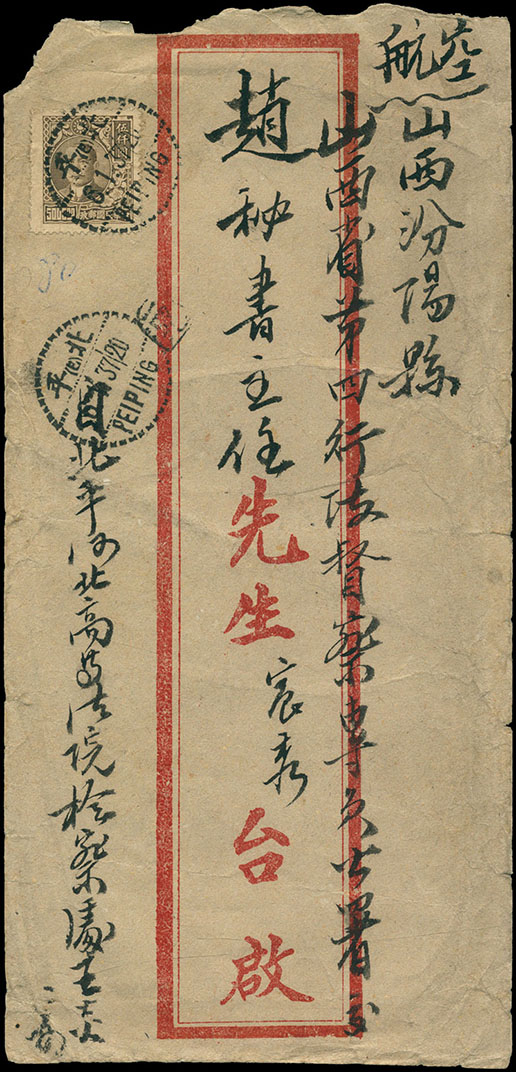 航空
山西汾陽縣
山西省第四行政督察專員公署交
趙秘書主任先生宸春台啟
自北平河北高等法院檢察處王
北平
PEIPING
北平
PEIPING
伍仟